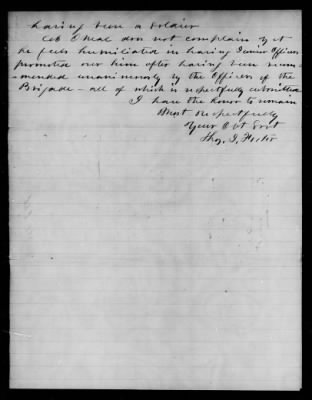 having been a Soldier
Col O'Neal does not complain yet
he feels humiliated in having Junior Officers
promoted over him after having been recom-
mended unanimously by the Officers of the
Brigade - all of which is respectfully submitted
I have the honor to remain
Most Respectfully
Your Obt Svt
Thos. J. Foster